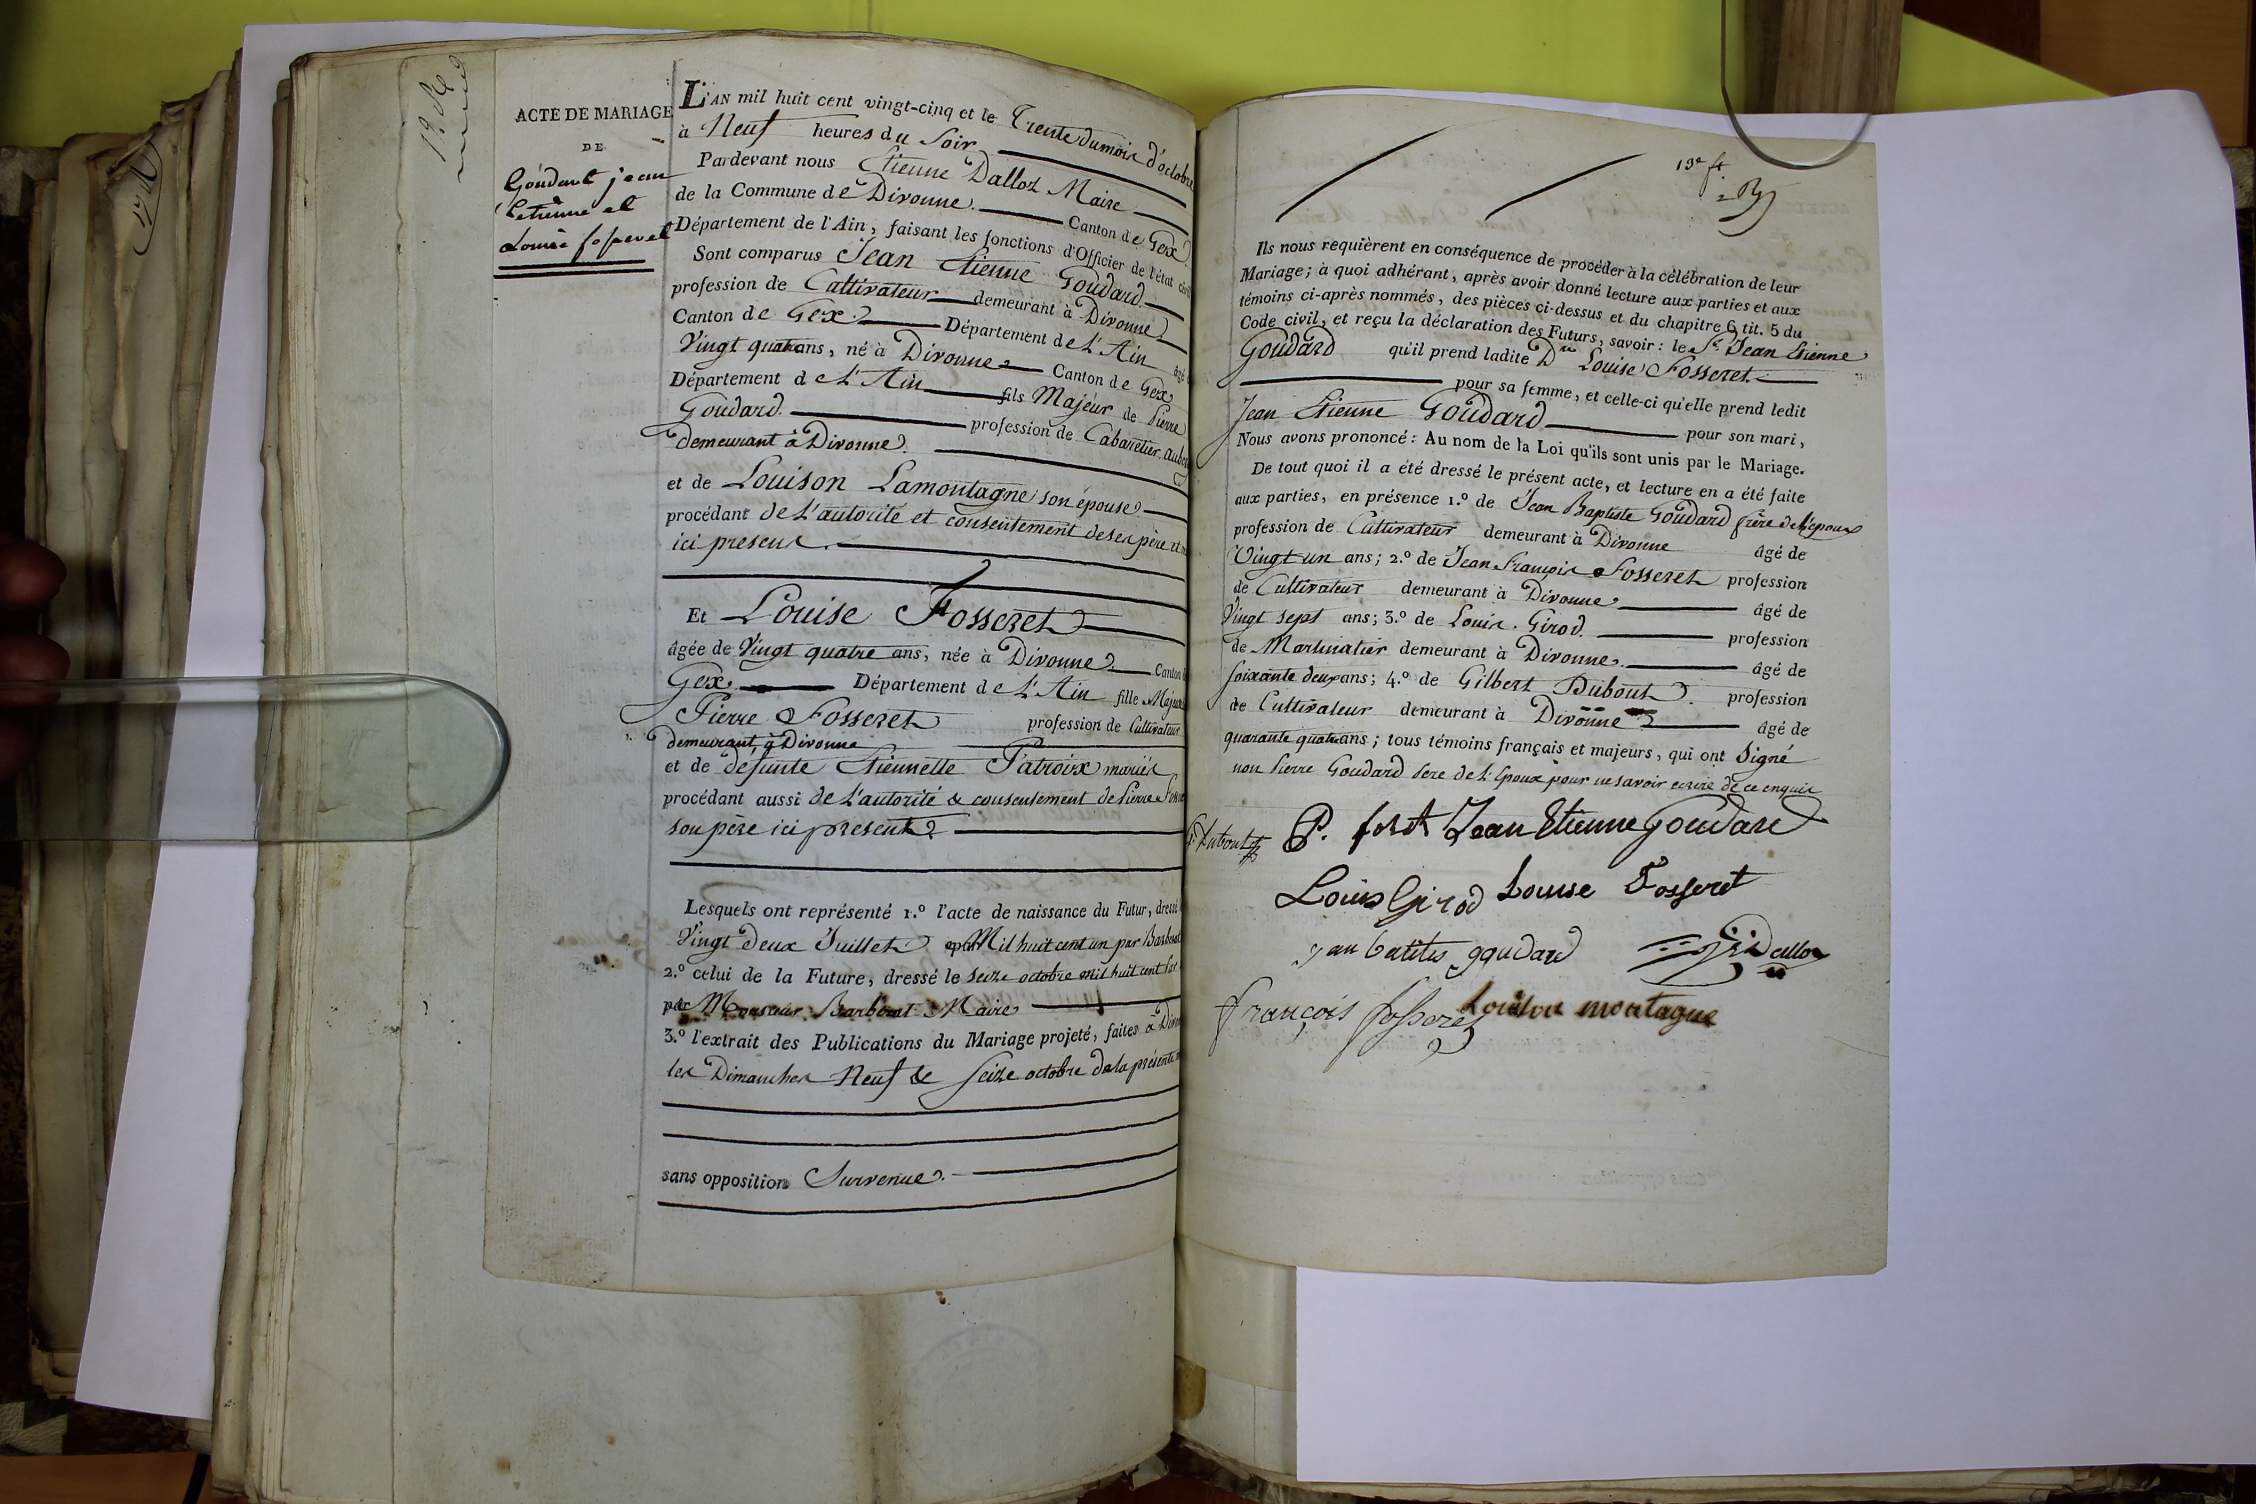 ACTE DE MARIAGE
DE
Goudard jean
Letiènne et
Louise fosseret
L'AN mil huit cent vingt-cinq et le Trente du mois d'octobre
à Neuf heures du Soir
Pardevant nous Etienne Dalloz Maire
de la Commune de Divonne. Canton de Gex
Département de l'Ain, faisant les fonctions d'Officier de l'état civil
Sont comparus Jean Etienne Goudard
profession de Cultivateur demeurant à Divonne
Canton de Gex. Département de L'Ain âgé
Vingt quatre ans, né à Divonne Canton de Gex
Département de L'Ain fils Majeur de Pierre
Goudard. profession de Cabaretier
demeurant à Divonne.
et de Louison Lamontagne son épouse
procédant de L'autorité et consentement de ses père et
ici presens.
Et Louise Fosseret
âgée de Vingt quatre ans, née à Divonne. Canton
Gex. Département de L'Ain fille Majeure
Pierre Fosseret profession de Cultivateur
demeurant à Divonne
et de defunte Etiennette Patroix mariés
procédant aussi de L'autorité & consentement de Pierre
son père ici present
Lesquels ont représenté 1.º l'acte de naissance du Futur, dressé
Vingt deux Juillet Mil huit cent un par Barberat
2.º celui de la Future, dressé le seize octobre mil huit cent
par Monsieur Barberat Maire
3.º l'extrait des Publications du Mariage projeté, faites à
les Dimanches Neuf & Seize octobre de la présente
sans opposition Survenue.
19e ft
Ils nous requièrent en conséquence de procéder à la célébration de leur
Mariage; à quoi adhérant, après avoir donné lecture aux parties et aux
témoins ci-après nommés, des pièces ci-dessus et du chapitre 6 tit. 5 du
Code civil, et reçu la déclaration des Futurs, savoir: le Sr. Jean Etienne
Goudard qu'il prend ladite Dlle Louise Fosseret
pour sa femme, et celle-ci qu'elle prend ledit
Jean Etienne Goudard pour son mari,
Nous avons prononcé: Au nom de la Loi qu'ils sont unis par le Mariage.
De tout quoi il a été dressé le présent acte, et lecture en a été faite
aux parties, en présence 1.º de Jean Baptiste Goudard frère de L'époux
profession de Cultivateur demeurant à Divonne âgé de
Vingt un ans; 2.º de Jean François Fosseret profession
de Cultivateur demeurant à Divonne âgé de
Vingt sept ans; 3.º de Louis Girod. profession
de Martinatier demeurant à Divonne. âgé de
soixante deux ans; 4.º de Gilbert Dubout profession
de Cultivateur demeurant à Divonne âgé de
quarante quatre ans; tous témoins français et majeurs, qui ont Signé
non Pierre Goudard Pere de L'Epoux pour ne savoir ecrire de ce enquis
G. Dubout P. fosret Jean Etienne Goudard
Louis Girod Louise Fosseret
jan batites goudard Dalloz
françois fosseret Louison montagne